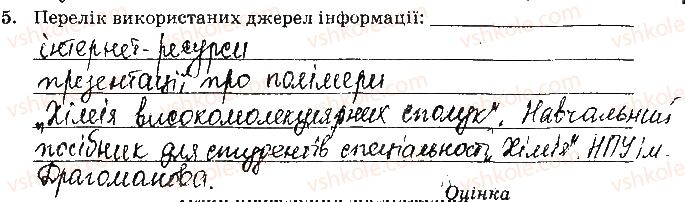 5. Перелік використаних джерел інформації:
інтернет-ресурси
презентації про полімери
„Хімія високомолекулярних сполук". Навчальний
посібник для студентів спеціальності „Хімія". НПУ ім.
Драгоманова.
Оцінка